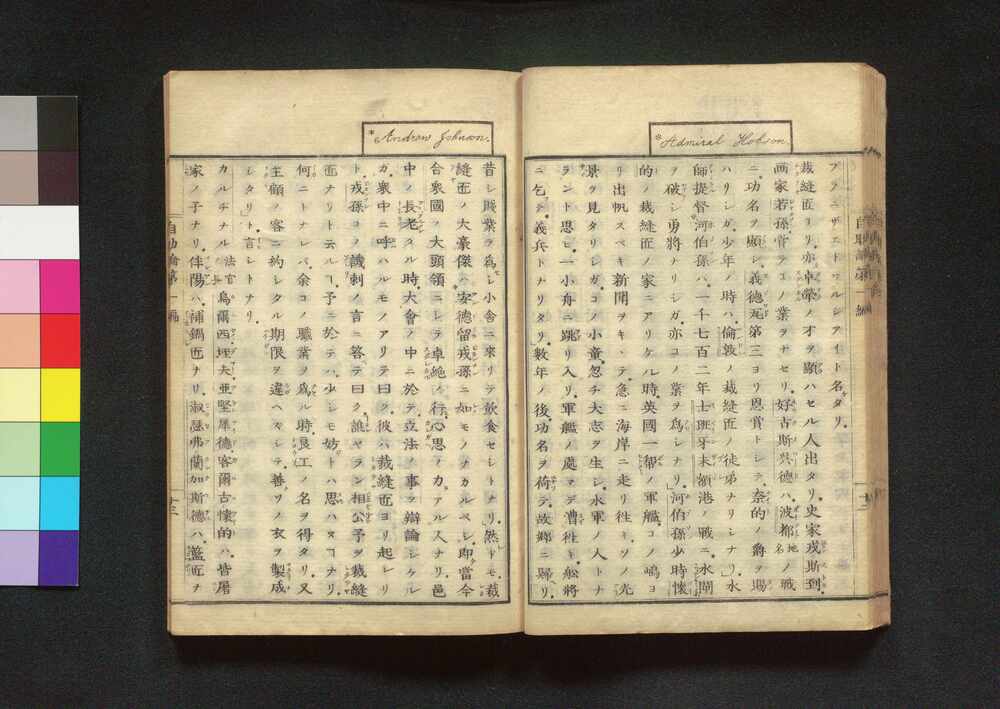 *Admiral Hobson.
ブラニザエトワルシアイト名ケタリ。
裁縫匠ヨリ。亦卓犖ノ才ヲ顯ハセル人出タリ。史家戎斯到。
画家若孫曾テコノ業ヲナセリ。好古斯呉德ハ。波都地名ノ戰
ニ功名ヲ顯シ。義德瓦第三ヨリ恩賞トシテ。奈的ノ爵ヲ賜
ハリシガ。少年ノ時ハ。倫敦ノ裁縫匠ノ徒弟ナリシナリ。水
師提督河伯孫ハ。一千七百二年。士班牙末額港ノ戰ニ。水閘
ヲ破シ勇將ナリシガ。亦コノ業ヲ爲シナリ。河伯孫少時懷
的ノ裁縫匠ノ家ニアリケル時。英國一帮ノ軍艦。コノ嶋ヨ
リ出帆スベキ新聞ヲキヽテ。急ニ海岸ニ走リ往キ。ソノ光
景ヲ見タリシガ。コノ小童。忽チ大志ヲ生シ。水軍ノ人トナ
ラント思ヒ。一小舟ニ跳リ入リ。軍艦ノ處マデ漕往ト。船將
ニ乞テ。義兵トナリタリ。數年ノ後。功名ヲ荷テ。故郷ニ歸リ。
自助論第一編
*Andrew Johnson.
昔シ賎業ヲ爲シ小舎ニ來リテ。飲食セシトナリ。然トモ。裁
縫匠ノ大豪傑ハ。安德留戎孫ニ如モノナカルベシ。即當今
合衆國ノ大頭領ニシテ。卓絶ノ行。心思ノ力アル人ナリ。邑
中ノ長老タル時。大會ノ中ニ於テ。立法ノ事ヲ辯論シケル
ガ。衆中ニ呼ハルモノアリテ曰ク。彼ハ裁縫匠ヨリ起レリ
ト。戎孫コノ譏刺ノ言ニ答テ曰ク。誰ヤラン相公予ヲ裁縫
匠ナリト云ルヿ。予ニ於テハ。少シモ妨トハ思ハヌヿナリ。
何ニトナレバ。余コノ職業ヲ爲ル時。良工ノ名ヲ得タリ。又
主顧ノ客ニ約シタル期限ヲ違ヘズシテ。善ソノ衣ヲ製成
シタリト言レトナリ。
カルヂナル法官烏爾西。埋夫。亜堅犀德。客爾古懷的ハ。皆屠
家ノ子ナリ。伴陽ハ。補鍋匠ナリ。淑惡弗。蘭加斯德ハ。籃匠ヲ
自助論第一編